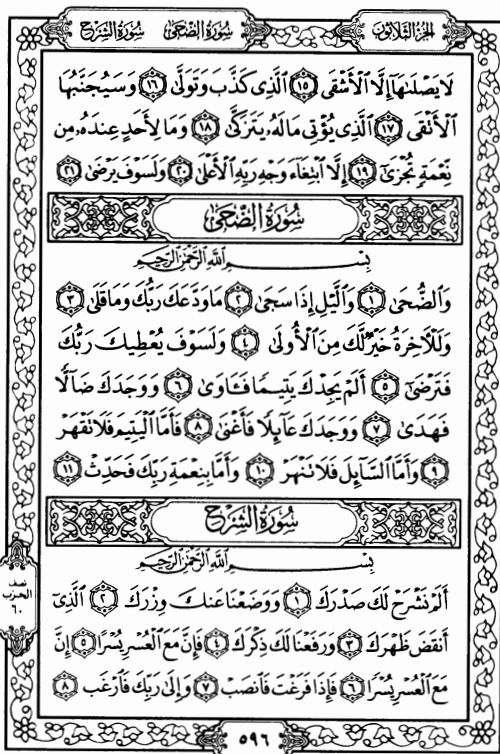 الجزء الثلاثون
سورة الضحى سورة الشرح
لَا يَصْلَىٰهَآ إِلَّا ٱلْأَشْقَى ١٥ ٱلَّذِى كَذَّبَ وَتَوَلَّىٰ ١٦ وَسَيُجَنَّبُهَا
ٱلْأَتْقَى ١٧ ٱلَّذِى يُؤْتِى مَالَهُۥ يَتَزَكَّىٰ ١٨ وَمَا لِأَحَدٍ عِندَهُۥ مِن
نِّعْمَةٍ تُجْزَىٰٓ ١٩ إِلَّا ٱبْتِغَآءَ وَجْهِ رَبِّهِ ٱلْأَعْلَىٰ ٢٠ وَلَسَوْفَ يَرْضَىٰ ٢١
سُورَةُ الضُّحَىٰ
بِسْمِ ٱللَّهِ ٱلرَّحْمَٰنِ ٱلرَّحِيمِ
وَٱلضُّحَىٰ ١ وَٱلَّيْلِ إِذَا سَجَىٰ ٢ مَا وَدَّعَكَ رَبُّكَ وَمَا قَلَىٰ ٣
وَلَلْءَاخِرَةُ خَيْرٌ لَّكَ مِنَ ٱلْأُولَىٰ ٤ وَلَسَوْفَ يُعْطِيكَ رَبُّكَ
فَتَرْضَىٰٓ ٥ أَلَمْ يَجِدْكَ يَتِيمًا فَـَٔاوَىٰ ٦ وَوَجَدَكَ ضَآلًّا
فَهَدَىٰ ٧ وَوَجَدَكَ عَآئِلًا فَأَغْنَىٰ ٨ فَأَمَّا ٱلْيَتِيمَ فَلَا تَقْهَرْ
٩ وَأَمَّا ٱلسَّآئِلَ فَلَا تَنْهَرْ ١٠ وَأَمَّا بِنِعْمَةِ رَبِّكَ فَحَدِّثْ ١١
سُورَةُ الشَّرْحِ
بِسْمِ ٱللَّهِ ٱلرَّحْمَٰنِ ٱلرَّحِيمِ
أَلَمْ نَشْرَحْ لَكَ صَدْرَكَ ١ وَوَضَعْنَا عَنكَ وِزْرَكَ ٢ ٱلَّذِىٓ
أَنقَضَ ظَهْرَكَ ٣ وَرَفَعْنَا لَكَ ذِكْرَكَ ٤ فَإِنَّ مَعَ ٱلْعُسْرِ يُسْرًا ٥ إِنَّ
مَعَ ٱلْعُسْرِ يُسْرًا ٦ فَإِذَا فَرَغْتَ فَٱنصَبْ ٧ وَإِلَىٰ رَبِّكَ فَٱرْغَب ٨
نصف
الحزب
٦٠
٥٩٦